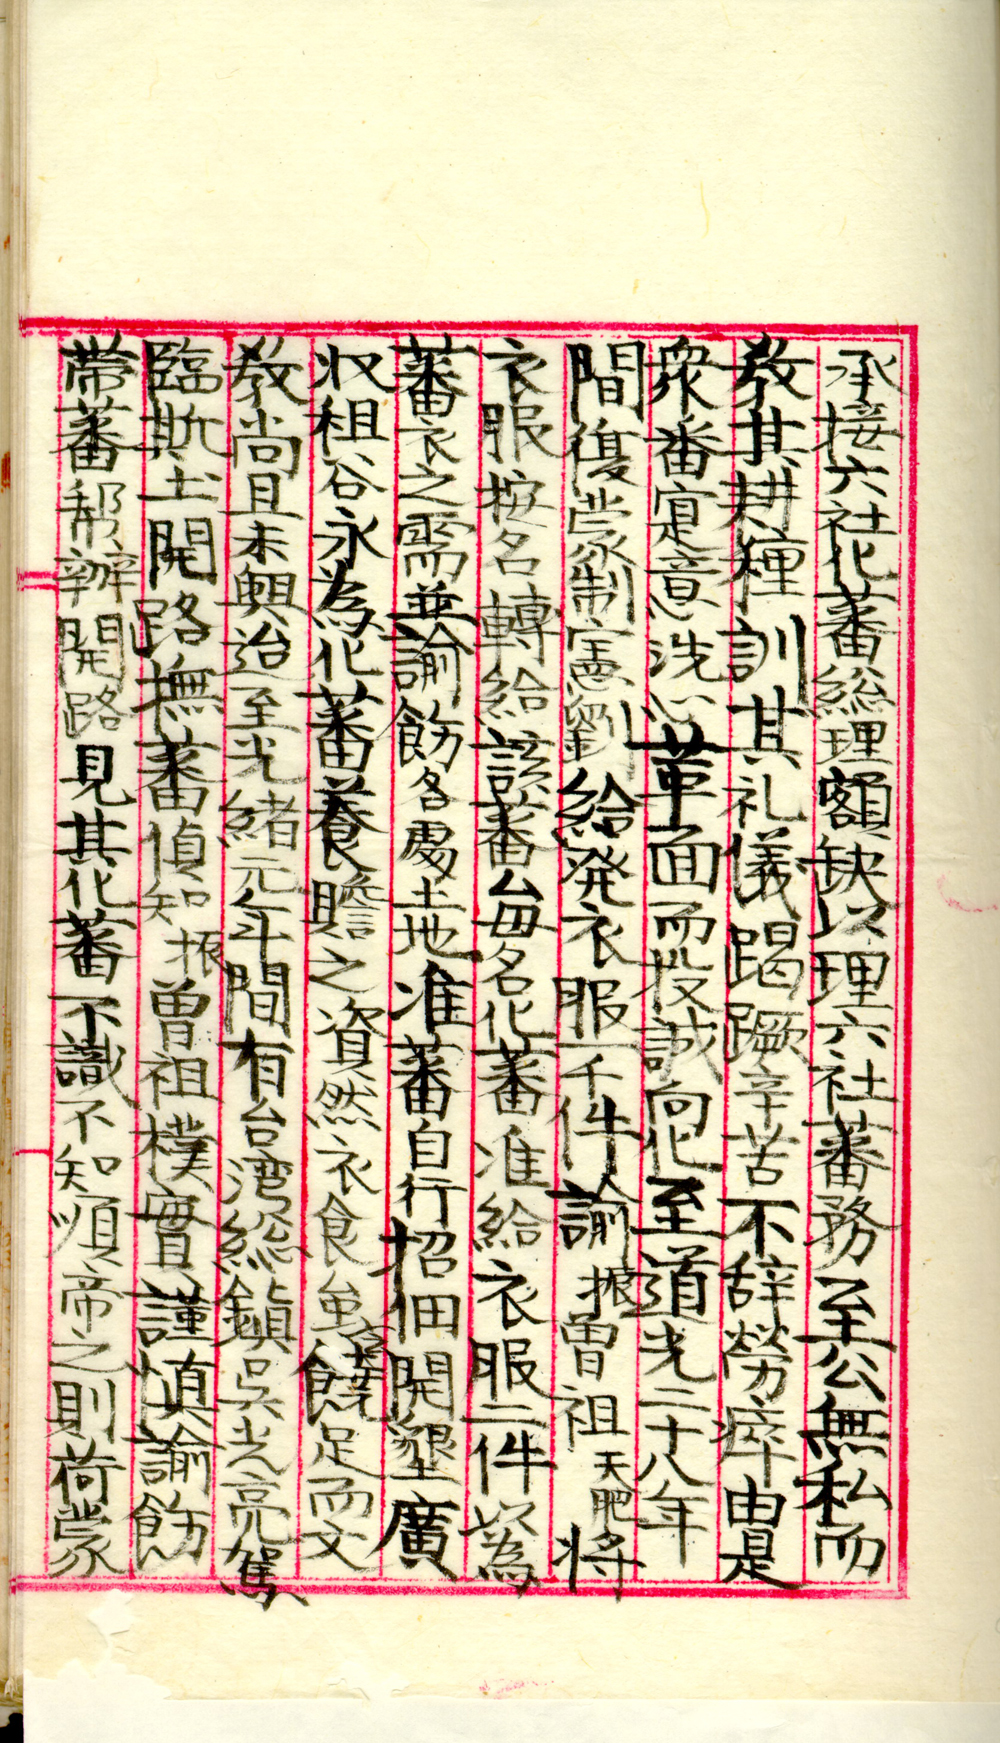 承接六社化蕃総理額缺以理六社蕃務至公無私而
教其耕種訓其礼儀竭蹶辛苦不辞勞瘁由是
衆番寔意洗心革面而投誠向化至道光二十八年
間復蒙制憲劉給発衣服一千件諭振曽祖天肥将
衣服按名轉給該蕃每名化蕃准給衣服二件以為
蕃衣之需並諭飭各處土地准蕃自行招佃開墾廣
収租谷永為化蕃養贍之資然衣食虽饒足而文
教尚且未興迨至光緒元年間有台湾総鎮吳光亮駕
臨斯土開路撫蕃偵知振曽祖樸實謹慎諭飭
帶蕃幇辦開路見其化蕃不識不知順帝之則荷蒙